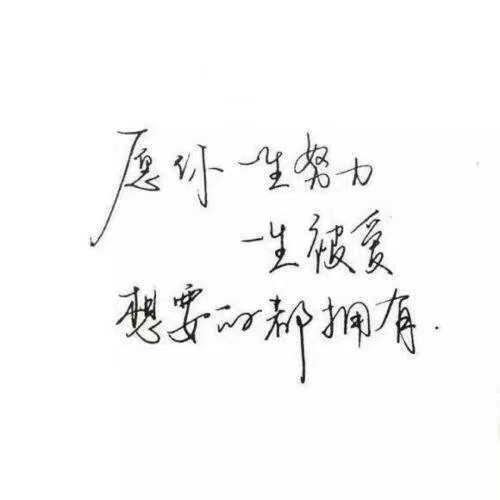 愿你一生努力
一生被爱
想要的都拥有.